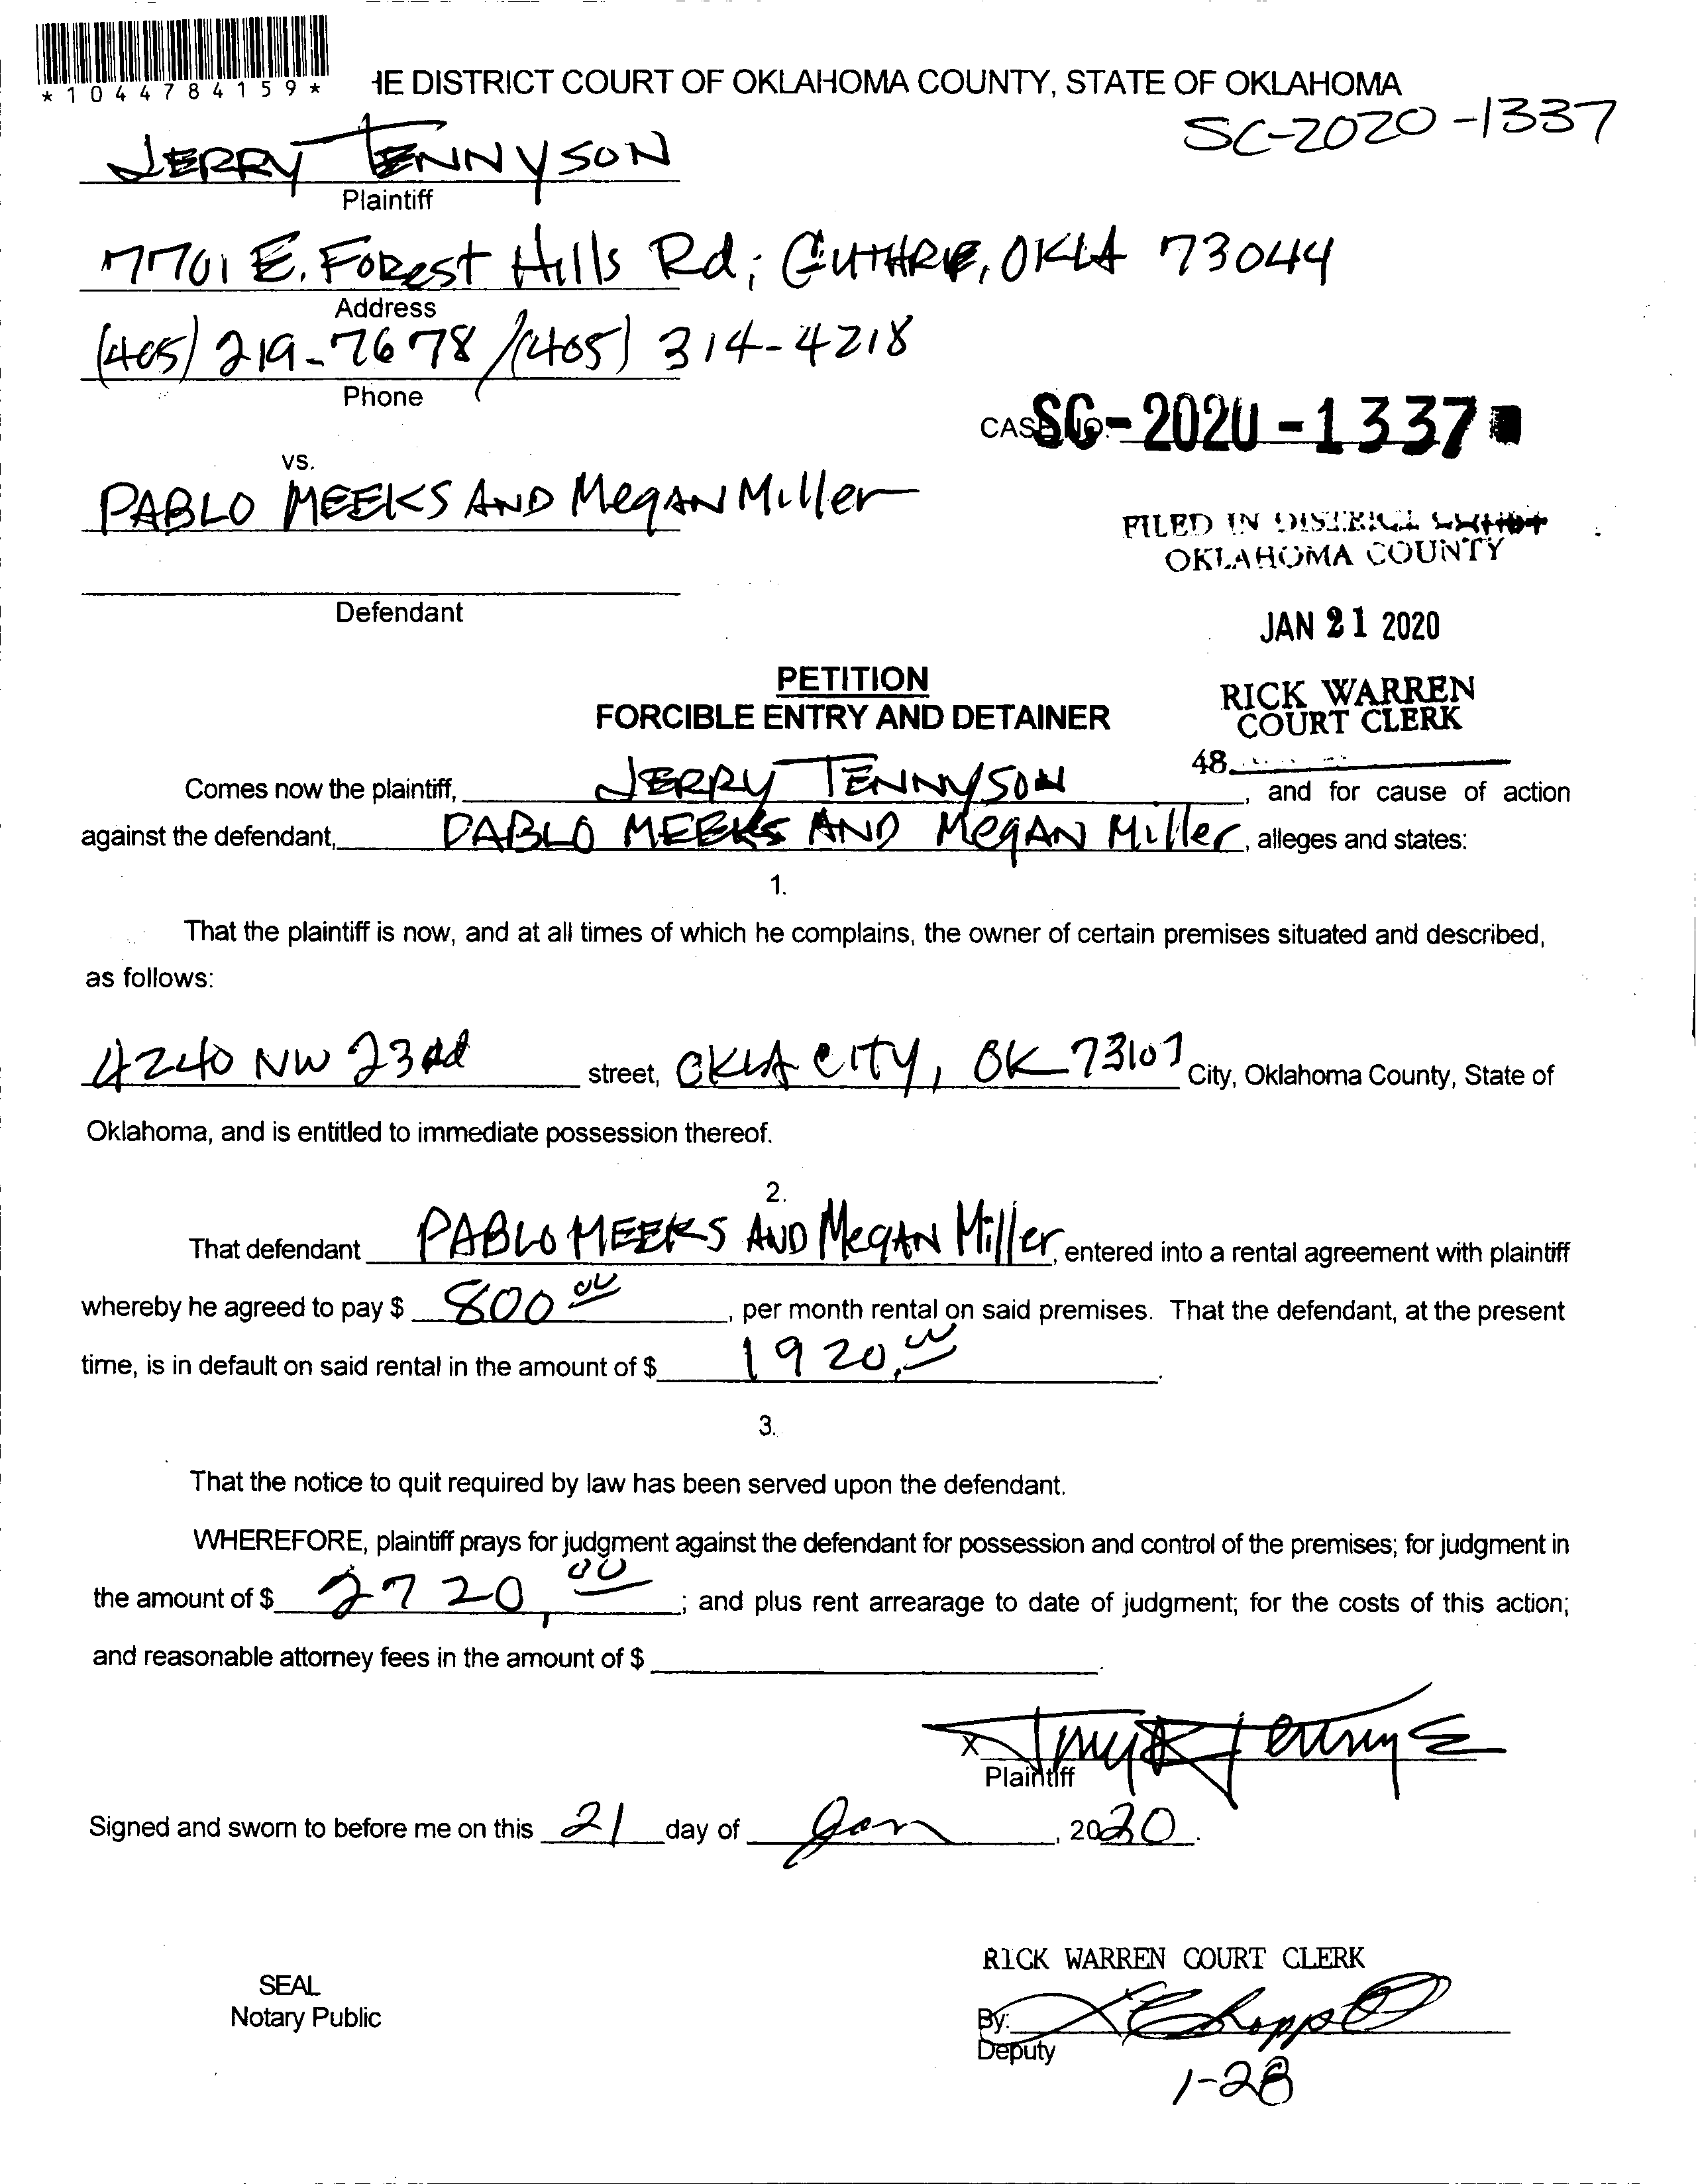 *1044784159*
IE DISTRICT COURT OF OKLAHOMA COUNTY, STATE OF OKLAHOMA
SC-2020-1337
JERRY TENNYSON
Plaintiff
7701 E. Forest Hills Rd; GUTHRIE, OKLA 73044
Address
(405) 219-7678 / (405) 314-4218
Phone
CASE NO. SC-2020-1337
vs.
PABLO MEEKS AND MegAN Miller
FILED IN DISTRICT COURT
OKLAHOMA COUNTY
Defendant
JAN 21 2020
PETITION
FORCIBLE ENTRY AND DETAINER
RICK WARREN
COURT CLERK
48
Comes now the plaintiff, JERRY TENNYSON, and for cause of action
against the defendant, PABLO MEEKS AND MegAN Miller, alleges and states:
1.
That the plaintiff is now, and at all times of which he complains, the owner of certain premises situated and described,
as follows:
4240 NW 23rd street, OKLA CITY, OK 73107 City, Oklahoma County, State of
Oklahoma, and is entitled to immediate possession thereof.
2.
That defendant PABLO MEEKS AND MegAN Miller, entered into a rental agreement with plaintiff
whereby he agreed to pay $ 800 00, per month rental on said premises. That the defendant, at the present
time, is in default on said rental in the amount of $ 1920.00.
3.
That the notice to quit required by law has been served upon the defendant.
WHEREFORE, plaintiff prays for judgment against the defendant for possession and control of the premises; for judgment in
the amount of $ 2720,00; and plus rent arrearage to date of judgment; for the costs of this action;
and reasonable attorney fees in the amount of $
X
Plaintiff
Signed and sworn to before me on this 21 day of Jan, 2020.
RICK WARREN COURT CLERK
SEAL
Notary Public
By:
Deputy
1-28